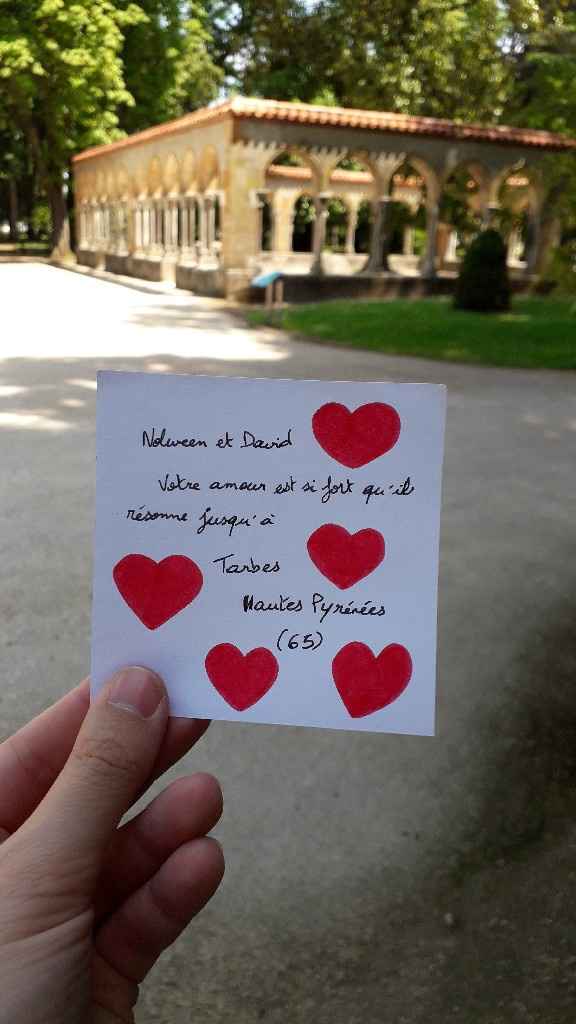 Nolween et David
Votre amour est si fort qu'il
résonne jusqu'à
Tarbes
Hautes Pyrénées
(65)